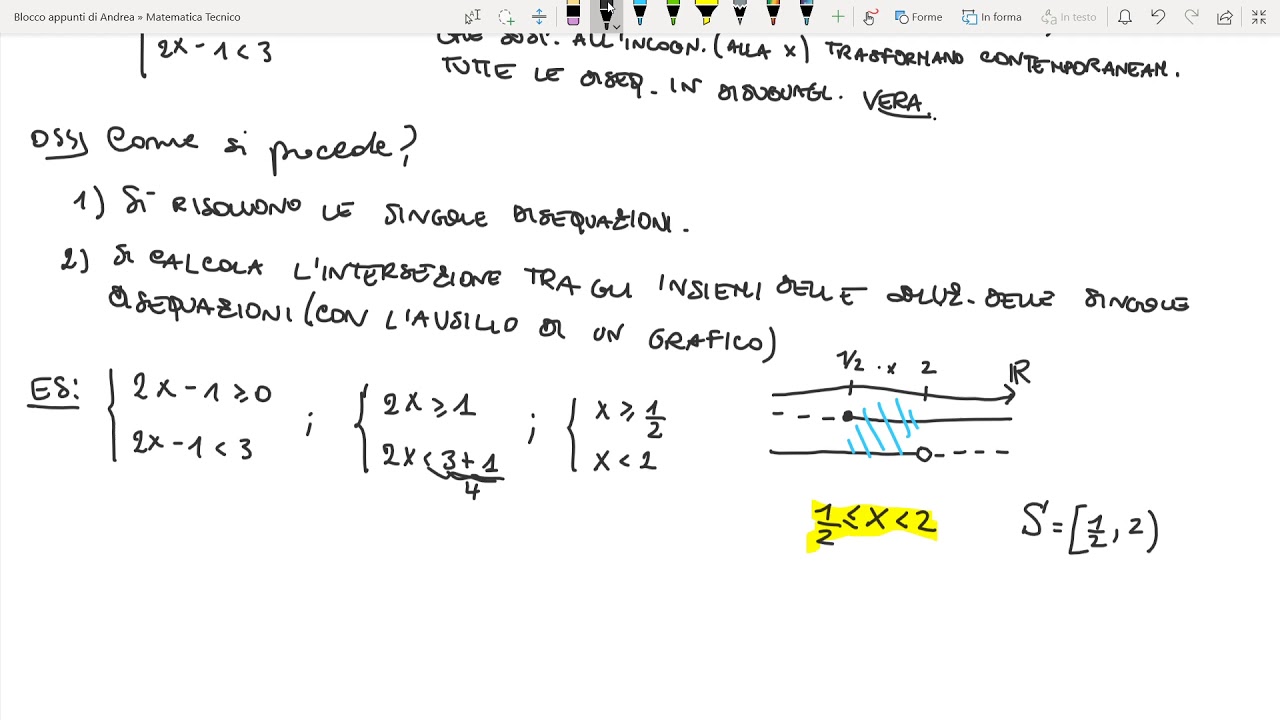 Blocco appunti di Andrea » Matematica Tecnico
Forme In forma In testo
2x - 1 < 3
CHE SOST. ALL'INCOGN. (ALLA X) TRASFORMANO CONTEMPORANEAM.
TUTTE LE DISEQ. IN DISUGUAGL. VERA.
OSS) Come si procede?
1) SI RISOLVONO LE SINGOLE DISEQUAZIONI.
2) SI CALCOLA L'INTERSEZIONE TRA GLI INSIEMI DELLE SOLUZ. DELLE SINGOLE
DISEQUAZIONI (CON L'AUSILIO DI UN GRAFICO)
1/2 · x 2 ℝ
ES: { 2x - 1 ≥ 0 ; { 2x ≥ 1 ; { x ≥ 1/2
2x - 1 < 3 2x < 3 + 1 x < 2
4
1/2 ≤ x < 2 S = [1/2, 2)